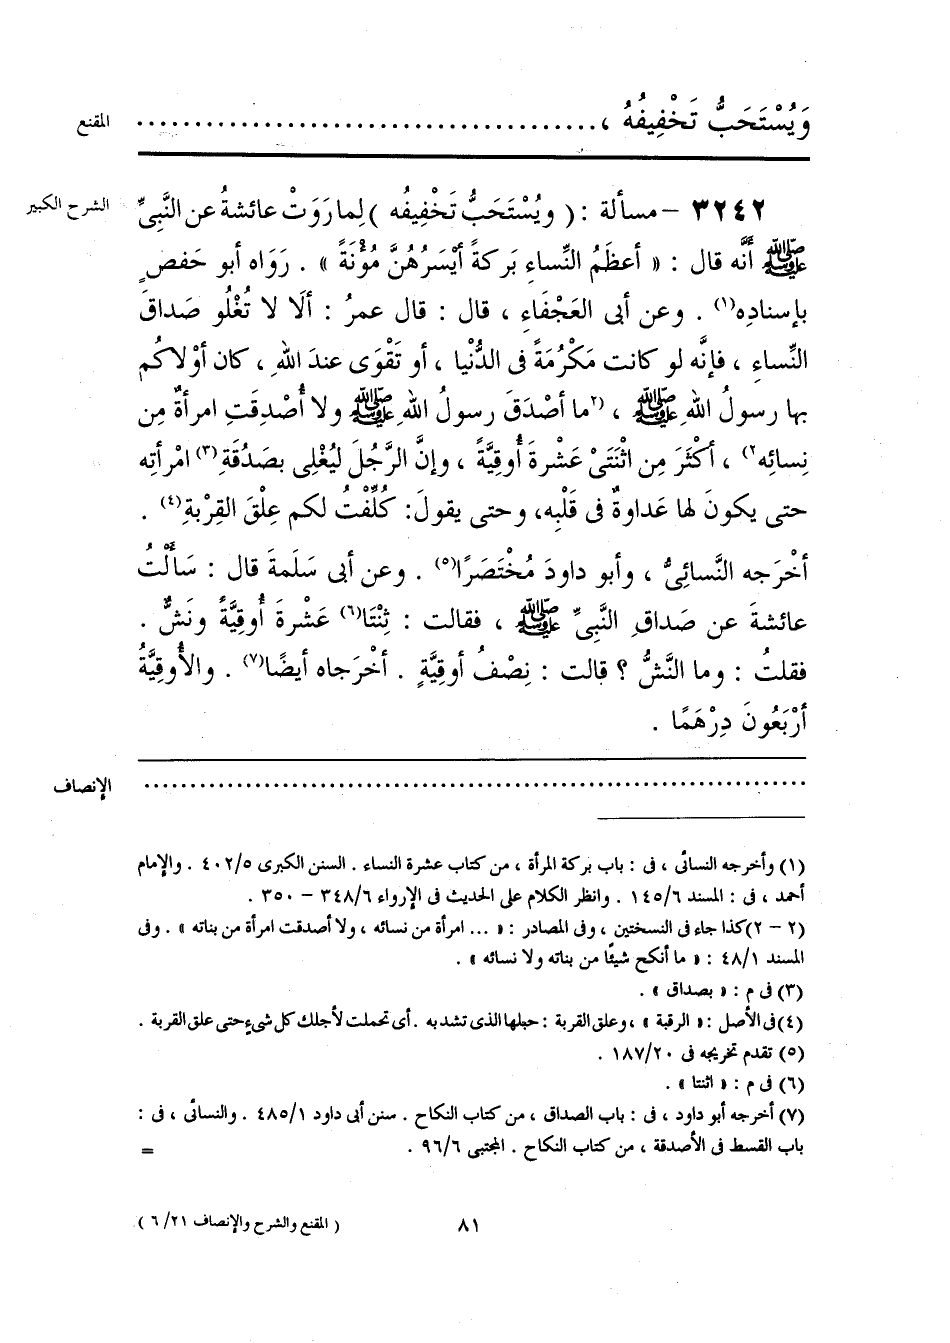 وَيُسْتَحَبُّ تَخْفِيفُهُ ، ........................................ المقنع
٣٢٤٢ – مسألة : ( ويُسْتَحَبُّ تَخْفِيفُه ) لِما رَوَتْ عائشةُ عن النَّبِيِّ الشرح الكبير
ﷺ أنَّه قال : « أعظَمُ النِّساءِ بَركةً أيْسَرُهُنَّ مُؤْنَةً » . رَوَاه أبو حَفصٍ
بإسنادِه(١) . وعن أبى العَجْفَاءِ ، قال : قال عمرُ : ألَا لا تُغْلُو صَداقَ
النِّساءِ ، فإنَّه لو كانت مَكْرُمَةً فى الدُّنْيا ، أو تَقْوَى عندَ اللهِ ، كان أوْلاكُم
بها رسولُ اللهِ ﷺ ، (٢ما أصْدَقَ رسولُ اللهِ ﷺ ولا أُصْدِقَتِ امرأةٌ مِن
نِسائِه٢) ، أكثَرَ مِن اثْنَتَىْ عَشْرةَ أُوقِيَّةً ، وإنَّ الرَّجُلَ لَيُغْلِى بصَدُقَةِ(٣) امْرأتِه
حتى يكونَ لها عَداوةٌ فى قَلْبِه، وحتى يقولَ: كُلِّفْتُ لكم عِلْقَ القِرْبةِ(٤) .
أخْرَجه النَّسائِىُّ ، وأبو داودَ مُخْتَصَرًا(٥) . وعن أبى سَلَمةَ قال : سَألْتُ
عائشةَ عن صَداقِ النَّبِيِّ ﷺ ، فقالت : ثِنْتَا(٦) عَشْرةَ أُوقِيَّةً ونَشٌّ .
فقلتُ : وما النَّشُّ ؟ قالت : نِصْفُ أوقِيَّةٍ . أخْرَجاه أيضًا(٧) . والأُوقِيَّةُ
أرْبَعُونَ دِرْهَمًا .
........................................ الإنصاف
(١) وأخرجه النسائى ، فى : باب بركة المرأة ، من كتاب عشرة النساء . السنن الكبرى ٤٠٢/٥ . والإمام
أحمد ، فى : المسند ١٤٥/٦ . وانظر الكلام على الحديث فى الإرواء ٣٤٨/٦ – ٣٥٠ .
(٢ – ٢) كذا جاء فى النسختين ، وفى المصادر : « ... امرأة من نسائه ، ولا أصدقت امرأة من بناته » . وفى
المسند ٤٨/١ : « ما أنكح شيئا من بناته ولا نسائه » .
(٣) فى م : « بصداق » .
(٤) فى الأصل : « الرقبة » ، وعلق القربة : حبلها الذى تشد به . أى تحملت لأجلك كل شىءٍ حتى علق القربة .
(٥) تقدم تخريجه فى ١٨٧/٢٠ .
(٦) فى م : « اثنتا » .
(٧) أخرجه أبو داود ، فى : باب الصداق ، من كتاب النكاح . سنن أبى داود ٤٨٥/١ . والنسائى ، فى :
باب القسط فى الأصدقة ، من كتاب النكاح . المجتبى ٩٦/٦ . =
٨١ ( المقنع والشرح والإنصاف ٦/٢١ )